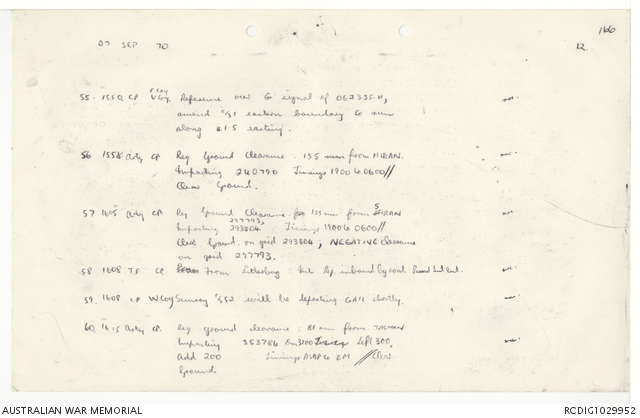 166
07 SEP 70 12
55. 1550 CP V Coy Reference our G signal of 062335H,
amend eastern boundary to run
along 215 easting.
56 1558 Arty CP Req Ground Clearance. 155 mm from
Impacting 240790 Timings 1900 to 0600//
Clear Ground.
57 1605 Arty CP Req Ground Clearance for 155 mm from
297793,
Impacting 293804 Timings 1900 to 0600//
Clear Ground on grid 293804, NEGATIVE clearance
on grid 297793.
58 1608 TF CP From : inbound by road
59. 1608 CP W Coy Sunray will be departing shortly.
60 1615 Arty CP. Req ground clearance : 81 mm from
Impacting 352786 Left 300,
add 200 Timings ASAP to //Clear
Ground.
AUSTRALIAN WAR MEMORIAL RCDIG1029952